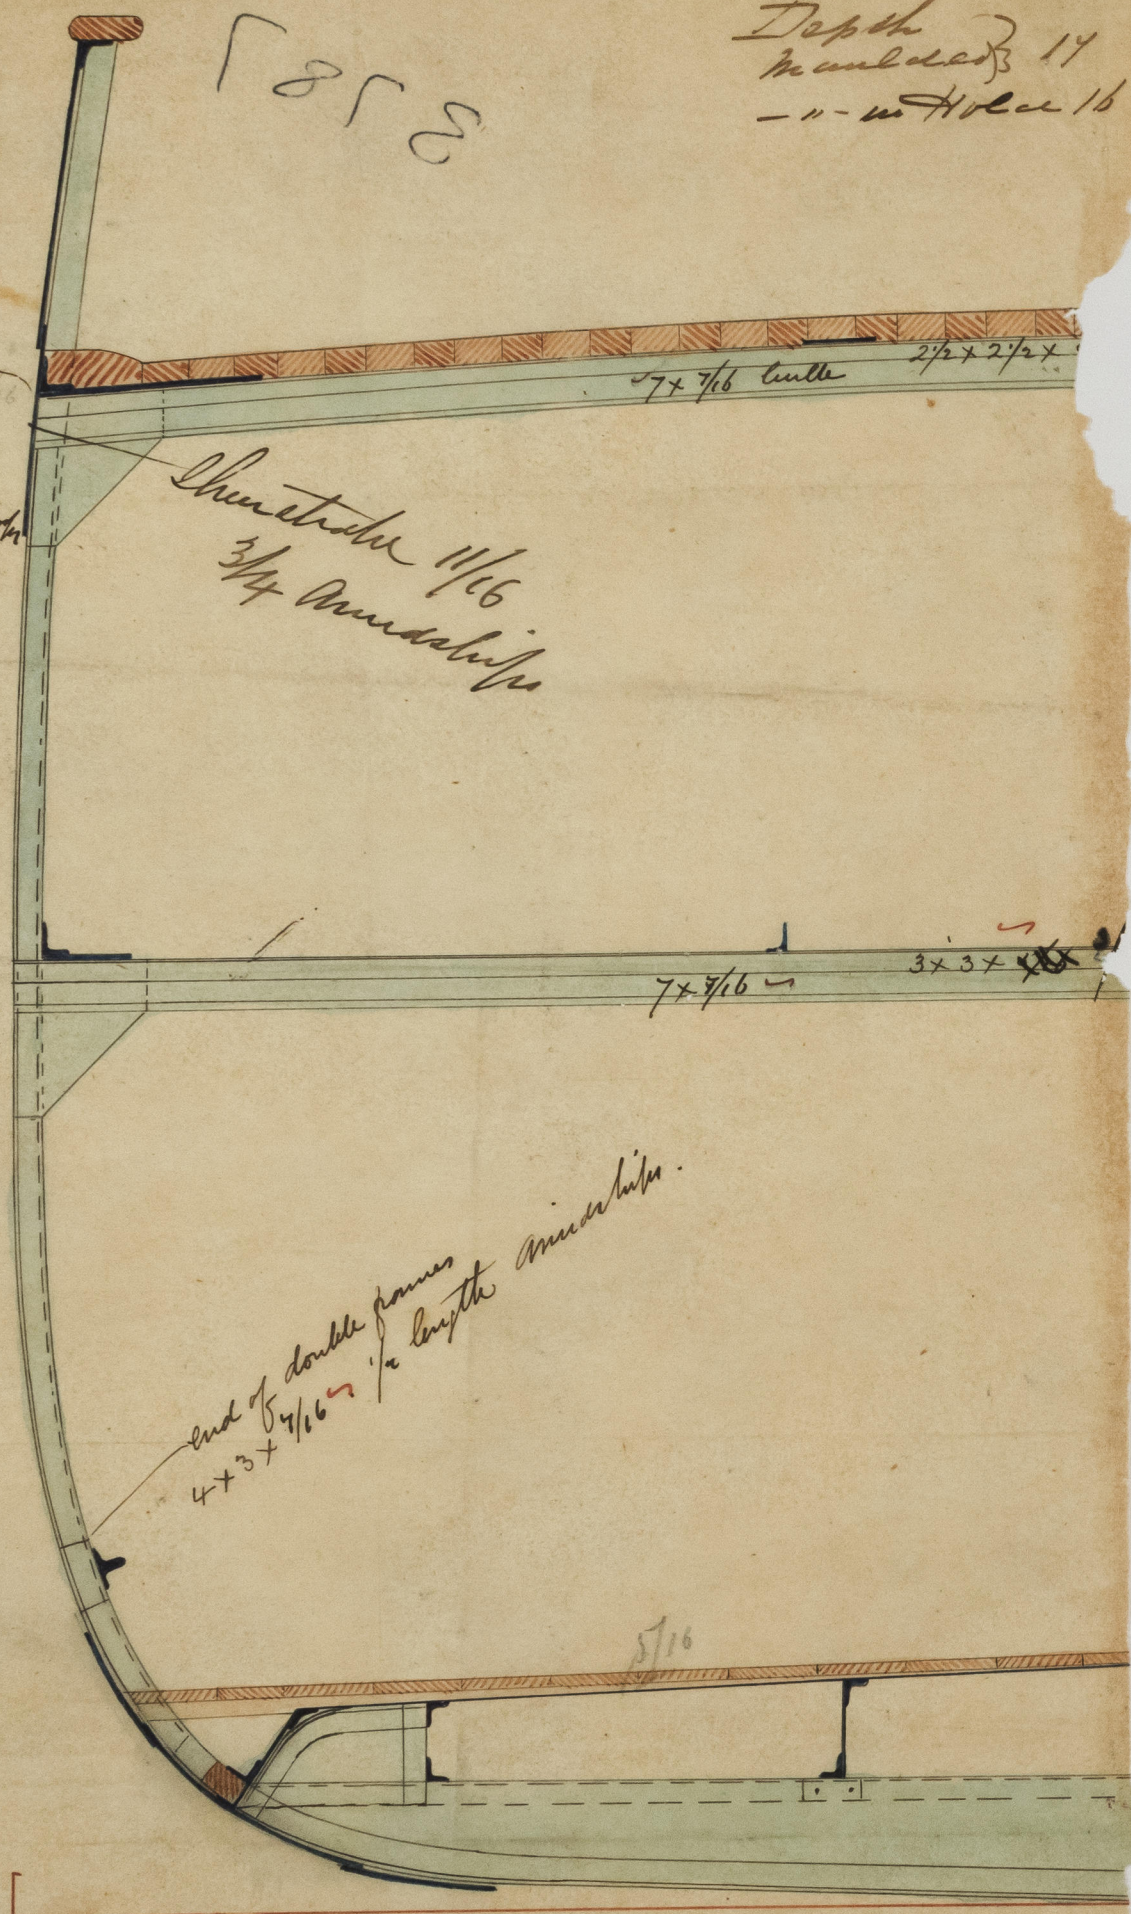 Depth
Moulded } 17
-"- in Hold 16
7 x 7/16 bulb
2 1/2 x 2 1/2 x
Sheerstrake 11/16
3/4 Amidships
3 x 3 x
7 x 7/16
end of double frames
4 x 3 x 7/16 1/2 length amidships.
5/16